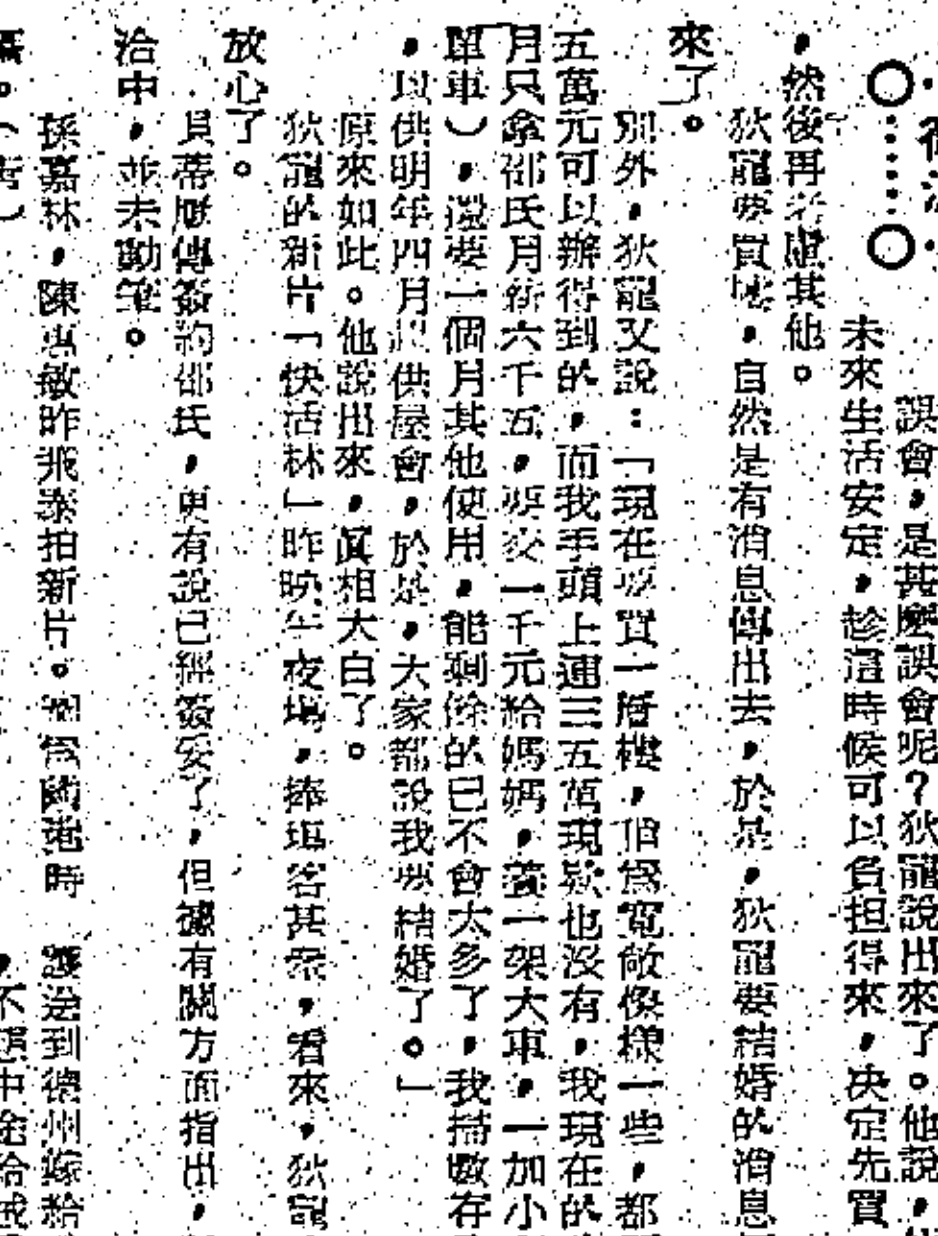 誤會，是甚麼誤會呢？狄龍說出來了。他說，
未來生活安定，趁這時候可以負担得來，决定先買
，然後再考慮其他。
狄龍要買樓，自然是有消息傳出去，於是，狄龍要結婚的消息
來了。
別外，狄龍又說：「現在要買一層樓，稍為寬敞像樣一些，都
五萬元可以辦得到的，而我手頭上連三五萬現欵也沒有，我現在的
月只拿邵氏月薪六千五，要交一千元給媽媽，養一架大車，一加小
單車），還要一個月其他使用，能剩餘的已不會太多了，我搞數存
，以供明年四月起供屋會，於是，大家都說我要結婚了。」
原來如此。他說出來，眞相大白了。
狄龍的新片「快活林」昨映午夜塲，捧塲客甚衆，看來，狄龍
放心了。
貝蒂厭傳簽約邵氏，更有說已經簽妥了，但據有關方面指出，
洽中，並未動筆。
孫嘉林，陳惠敏昨飛泰拍新片。 時 護送到德州嫁給